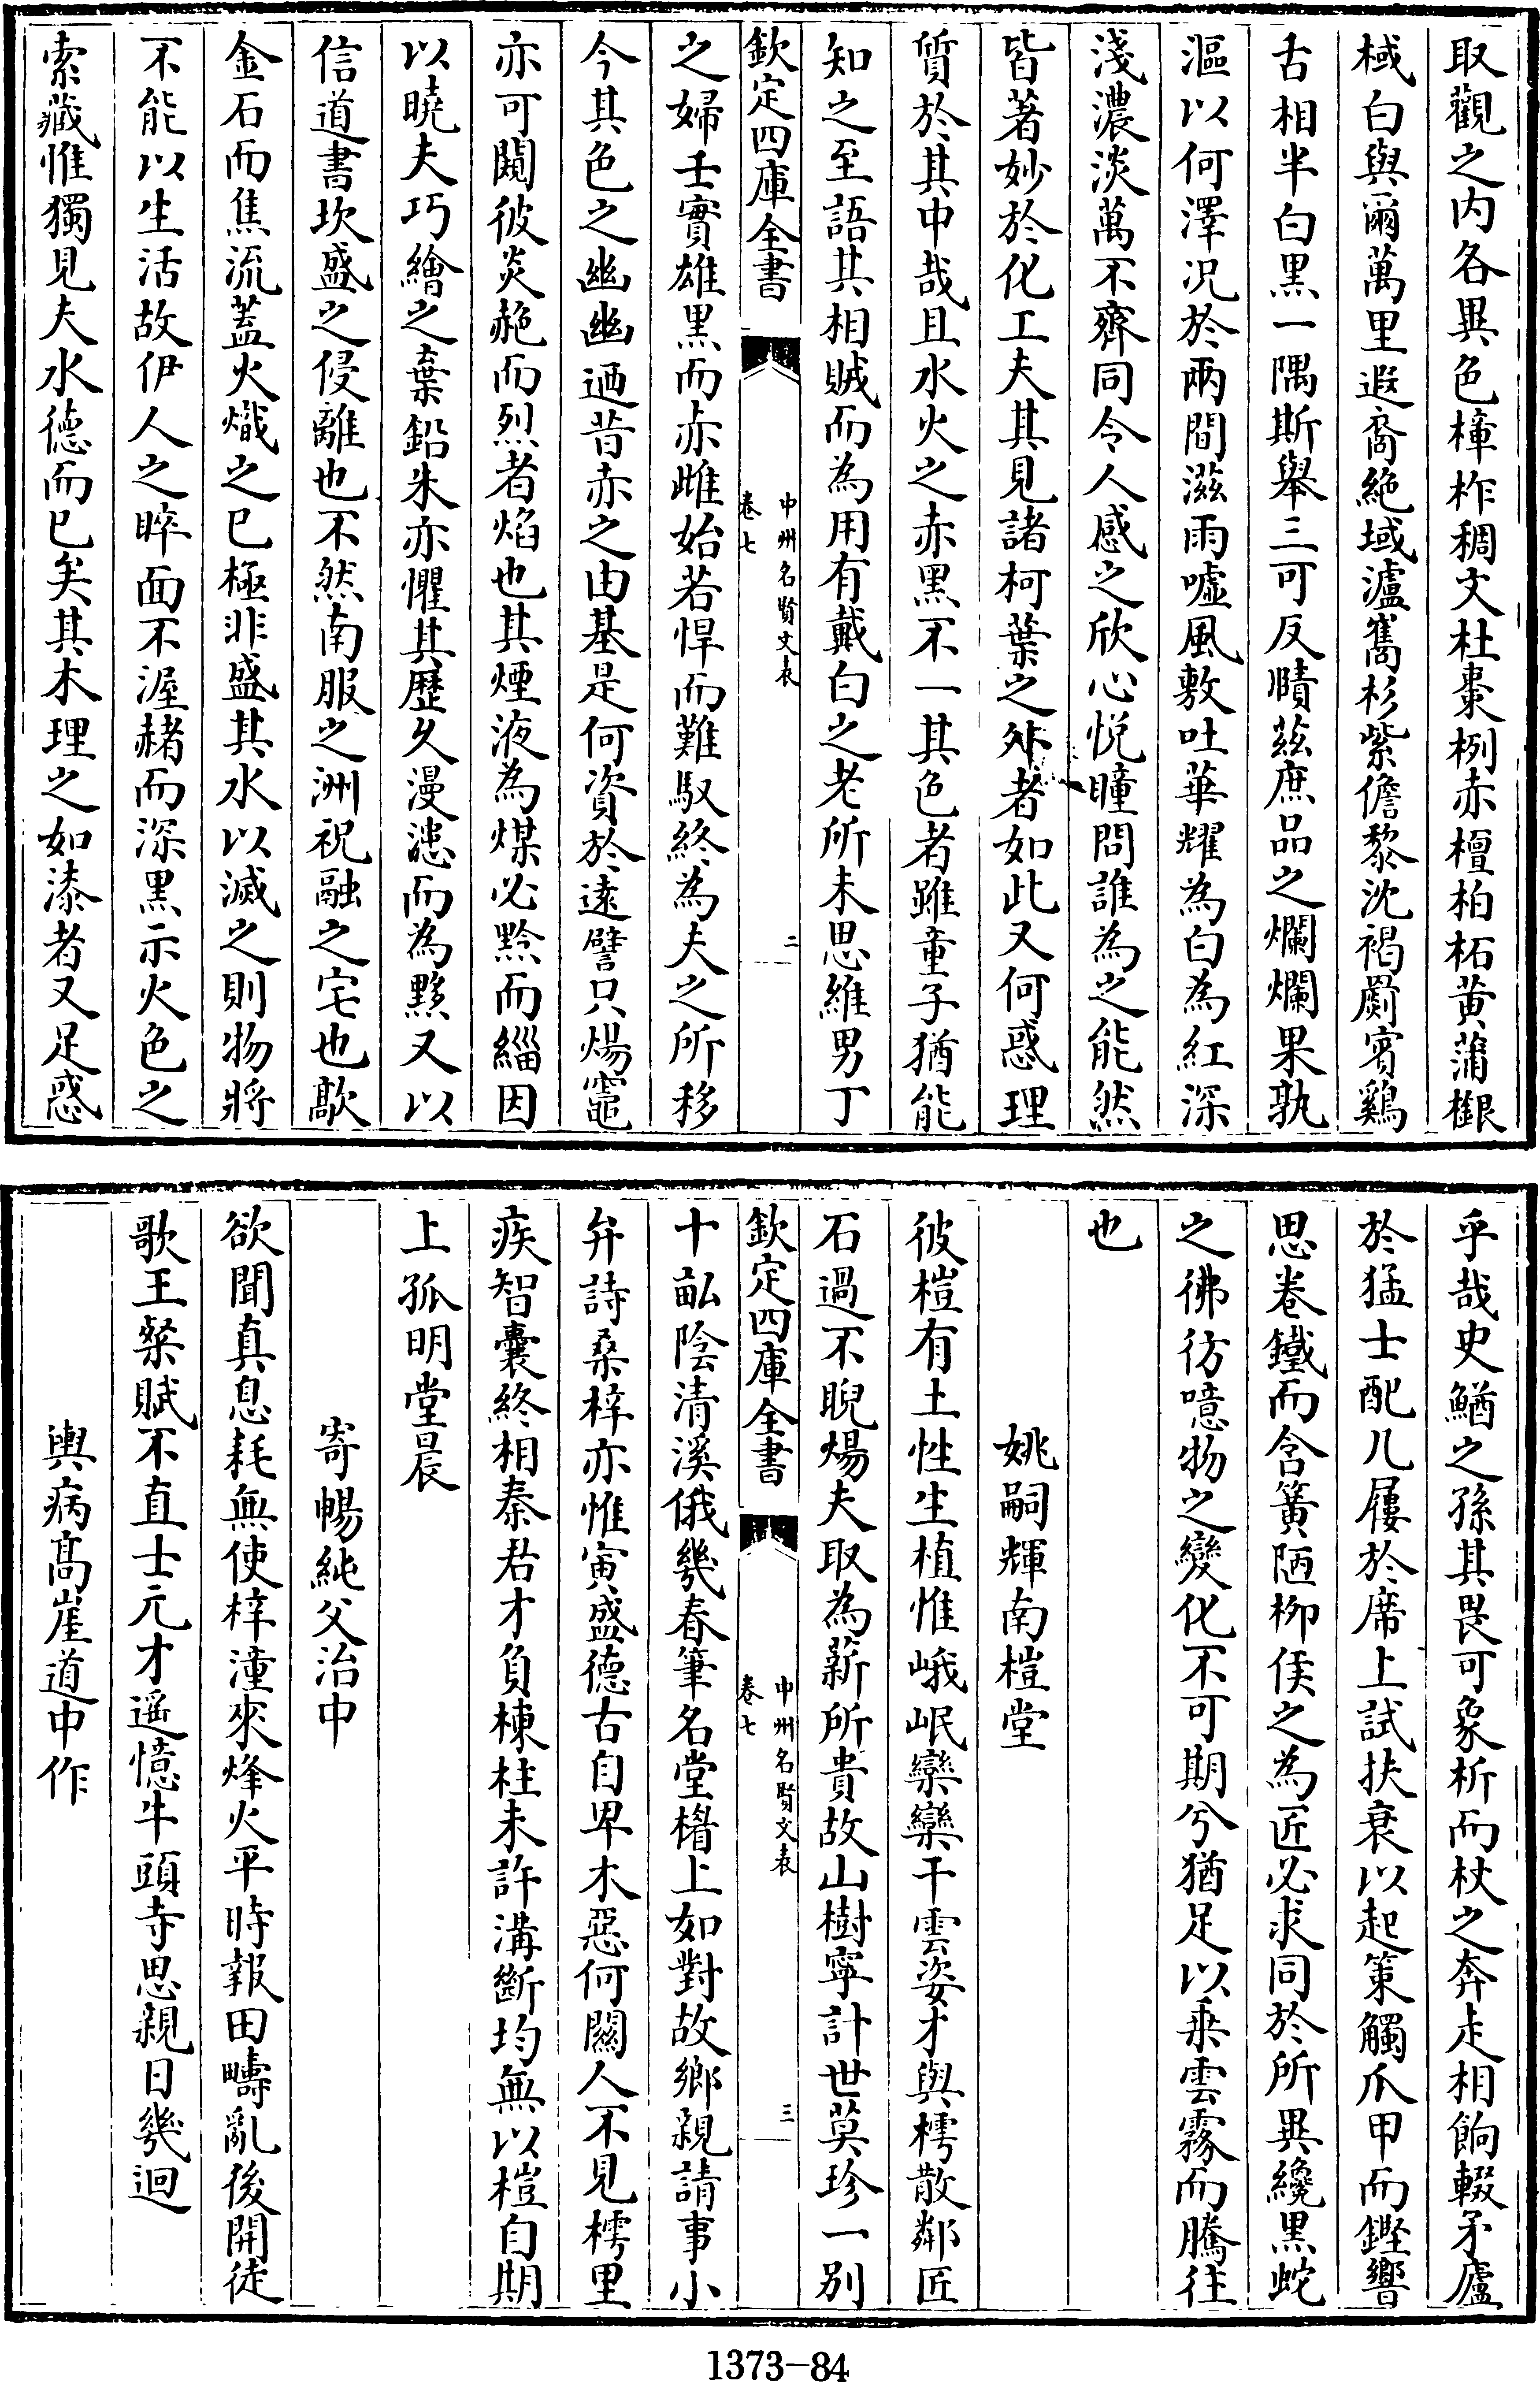 取觀之内各異色樟柞稠文杜棗栵赤檀柏柘黄蒲櫬
棫白與爾萬里遐裔絶域瀘䲽杉紫儋黎沈褐罽賓鷄
舌相半白黒一隅斯舉三可反賾茲庶品之爛爛果孰
漚以何澤况於兩間滋雨噓風敷吐華耀為白為紅深
淺濃淡萬不齊同令人感之欣心悦瞳問誰為之能然
皆著妙於化工夫其見諸柯葉之外者如此又何惑理
質於其中哉且水火之赤黒不一其色者雖童子猶能
知之至語其相賊而為用有戴白之老所未思維男丁
欽定四庫全書
中州名賢文表
卷七
二
之婦壬實雄黒而赤雌始若悍而難馭終為夫之所移
今其色之幽幽迺昔赤之由基是何資於逺譬只煬竈
亦可闚彼炎赩而烈者焰也其煙液為煤必黔而緇因
以曉夫巧繪之棄鉛朱亦懼其歴久漫漶而為黟又以
信道書坎盛之侵離也不然南服之洲祝融之宅也歊
金石而焦流蓋火熾之已極非盛其水以滅之則物將
不能以生活故伊人之睟面不渥赭而深黒示火色之
索藏惟獨見夫水德而已矣其木理之如漆者又足惑
乎哉史鰌之孫其畏可象析而杖之奔走相餉輟矛廬
於猛士配几屨於席上試扶衰以起策觸爪甲而鏗響
思卷鐵而含簧陋栁侯之為匠必求同於所異纔黒蛇
之彿彷噫物之變化不可期兮猶足以乗雲霧而騰往
也
姚嗣輝南榿堂
彼榿有土性生植惟峨岷欒欒干雲姿才與樗散鄰匠
石過不睨煬夫取為薪所貴故山樹寧計世莫珍一别
欽定四庫全書
中州名賢文表
卷七
三
十畆陰清溪俄幾春筆名堂楣上如對故鄉親請事小
弁詩桑梓亦惟寅盛德古自卑木惡何闗人不見樗里
疾智囊終相秦君才負棟柱未許溝斷均無以榿自期
上孤明堂晨
寄暢純父治中
欲聞真息耗無使梓潼來烽火平時報田疇亂後開徒
歌王粲賦不直士元才遥憶牛頭寺思親日幾迴
輿病髙崖道中作
1373-84